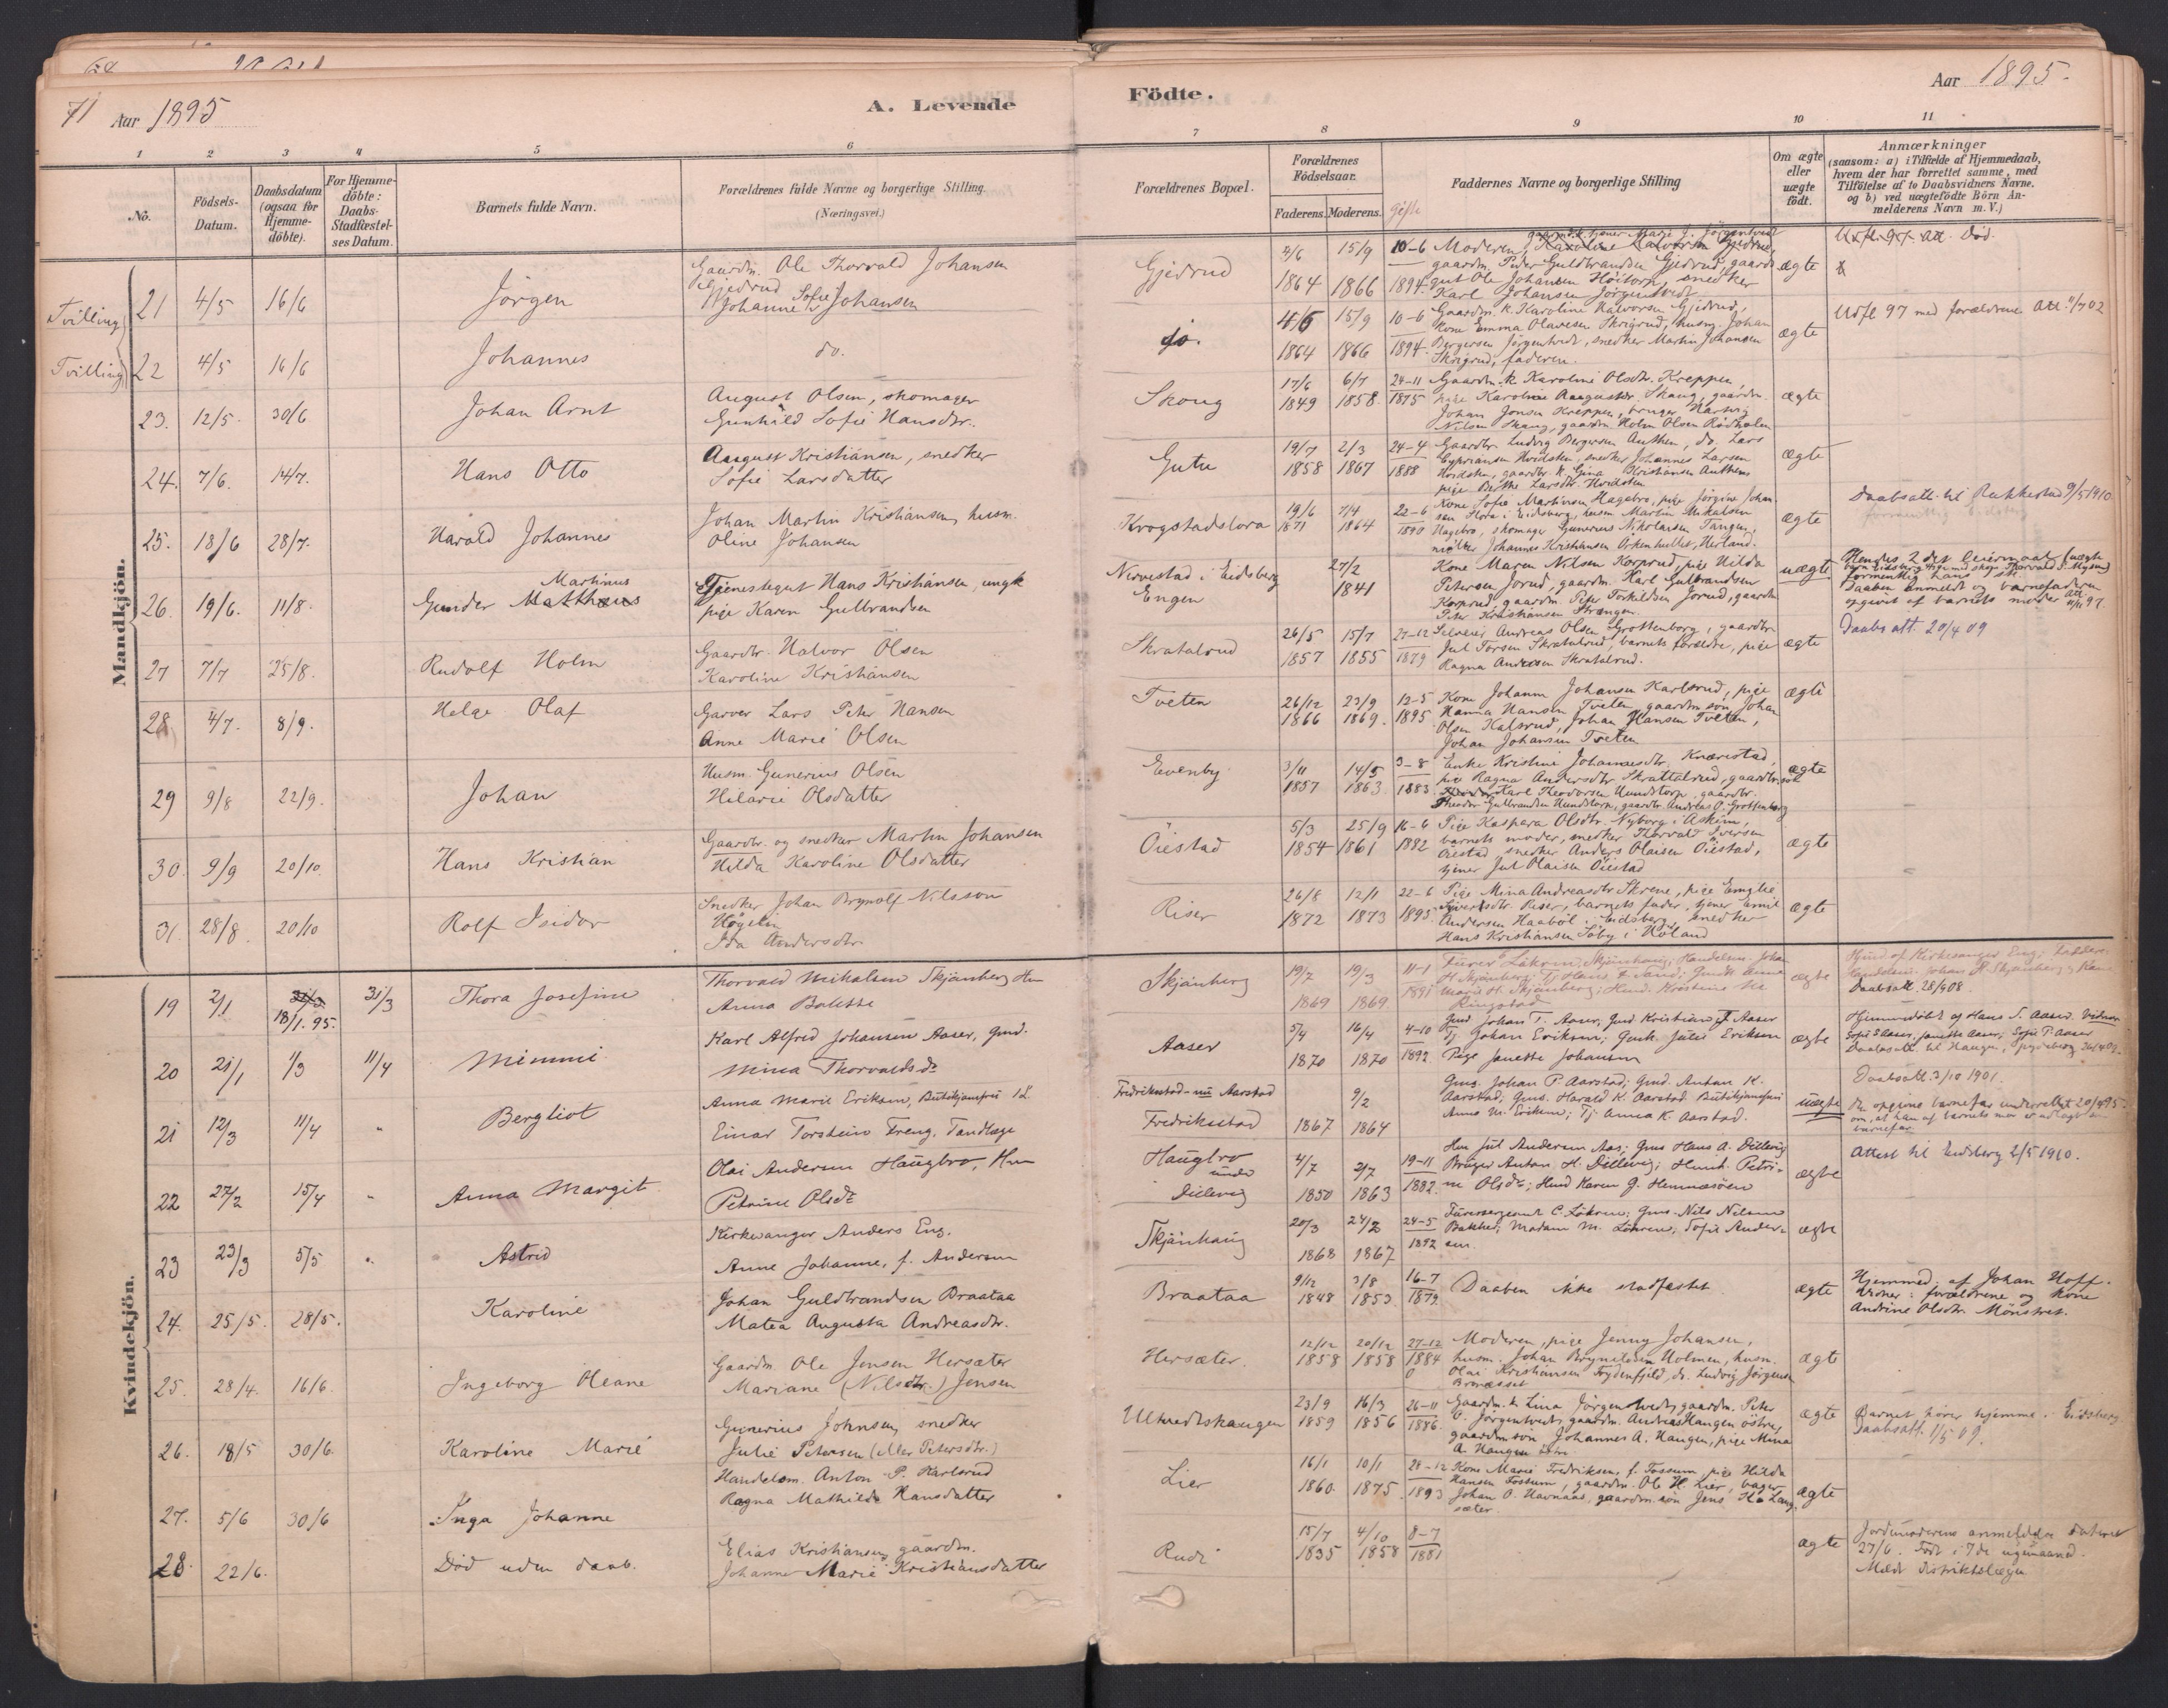 71 Aar 1895
A. Levende
Födte.
Aar 1895.
1 2 3 4 5 6 7 8 9 10 11
No.
Födsels-Datum.
Daabsdatum (ogsaa for Hjemme-döbte).
For Hjemme-döbte: Daabs-Stadfæstel-ses Datum.
Barnets fulde Navn.
Forældrenes fulde Navne og borgerlige Stilling.
(Næringsvei.)
Forældrenes Bopæl.
Forældrenes Födselsaar.
Faderens. Moderens.
Gifte
Faddernes Navne og borgerlige Stilling
Om ægte eller uægte födt.
Anmærkninger
(saasom: a) i Tilfælde af Hjemmedaab, hvem der har forrettet samme, med Tilföielse af to Daabsvidners Navne. og b) ved uægtefödte Börn An-melderens Navn m. V.)
Mandkjön.
Tvilling 21 4/5 16/6 Jörgen
Gaardm. Ole Thorvald Johansen
Gjedrud
Johanne Sofie Johansen
Gjedrud 1864 15/9 1866 10-6 1894
gaardm. Peder Guldbrandsen Gjedrud, gaard-
gut Ole Johansen Höitorp, snedker
Karl Johansen Jörgentvedt
ægte
Död.
Tvilling 22 4/5 16/6 Johannes do.
do. 1864 15/9 1866 10-6 1894
Gaardm. k. Karoline Halvorsen Gjedrud,
Kone Emma Olavesen Skrigrud, husm. Johan
Bergersen Jörgentvedt, snedker Martin Johansen
Skrigrud, faderen.
ægte
Udfl 97 med forældrene Att. 11/7 02
23. 12/5. 30/6 Johan Arnt
August Olsen, skomager
Gunhild Sofie Hansdtr.
Skoug 17/6 1849 6/7 1858. 24-11 1875
Gaardm. k Karoline Olsdtr. Kreppen,
pige Karoline Augusta Skaug, gaardm.
Johan Jonsen Kreppen, bruger Hartvig
Nilsen Skaug, gaardm Holm Olsen Rödholm
ægte
24. 7/6. 14/7. Hans Otto
August Kristiansen, snedker
Sofie Larsdatter
Gutu 19/7 1858 2/3 1867 24-4 1888
Gaardbr. Ludvig Bergersen Authen, do. Lars
Cypriansen Hvidsten, snedker Johannes Larsen
Hvidsten, gaardbr. k. Gina Kristiansen Authen
pige Berthe Larsdtr. Hvidsten
ægte
25. 18/6 28/7. Harald Johannes
Johan Martin Kristiansen, husm.
Oline Johansen
Krogstadslora 19/6 1871 7/4 1864 22-6 1890
Kone Sofie Martinsen Hagebro, pige Jörgine Johan-
sen Slora i Eidsberg, husm. Martin Mikalsen
Hagebro, skomager Gunerius Nikolaisen Tangen,
Johannes Kristiansen Örkenhullet, Herland.
ægte
Daabsatt. til Rakkestad 9/5 1910
26. 19/6. 11/8. Gunder Martinus
Tjenestegut Hans Kristiansen, ungk
pige Karen Gulbrandsen
Nervestad i Eidsberg
Engen
27/2 1841
Kone Maren Nilsen Korprud, pige Hilda
Petersen Jorud, gaardm. Karl Gulbrandsen
Korprud, gaardm. Peter Torkildsen Jorud, gaardm
Peter Kristiansen Strængen.
uægt.
Hendes 2 det leiermaal (uægte
formentlig hans 1 ste.
Daaben anmeldt og barnefaderen
opgivet af barnets moder att 97.
27 7/7 25/8. Rudolf Holm
Gaardbr. Halvor Olsen
Karoline Kristiansen
Skratalrud 26/5 1857 15/7 1855 27-12 1879
Andreas Olsen Grottenborg, gaardbr.
Jul Torsen Skratalrud, barnets forældre, pige
Ragna Andersen Skratalrud.
ægte
Daabs att. 20/4 09
28 4/7. 8/9. Helge Olaf
Garver Lars Peter Hansen
Anne Marie Olsen
Tveten 26/12 1866 23/9 1869. 12-5 1895
Kone Johanne Johansen Karlsrud, pige
Hanna Hansen Tveten, gaardm. sön Johan
Olsen Kalsrud, Johan Hansen Tveten,
Johan Johansen Tveten
ægte
29 9/8 22/9. Johan
Husm. Gunerius Olsen
Hilarie Olsdatter
Evenby 3/11 1857 14/5 1863. 3-8 1883.
Enke Kristine Johannesdtr. Knærestad,
pige Ragna Andersdtr. Skrattalrud, gaardbr.
Karl Theodorsen Hundstorp, gaardbr.
Theodor Gulbrandsen Hundstorp, gaardbr. Andreas O. Grottenborg
ægte
30. 9/9 20/10. Hans Kristian
Gaardbr. og snedker Martin Johansen
Hilda Karoline Olsdatter
Öiestad 5/3 1854 25/9 1861 16-6 1882
Pige Kaspara Olsdtr. Nyborg i Askim,
barnets moder, snedker Thorvald Iversen
Öiestad, snedker Anders Olaisen Öiestad,
tjener Jul Olaisen Öiestad
ægte
31. 28/8. 20/10 Rolf Isidor
Snedker Johan Brynolf Nilsson
Högelin
Ida Andersdtr.
Riser 26/8 1872 12/1 1873 22-6 1895
Pige Mina Andreasdtr Skrene, pige Emilie
Riser, barnets fader, tjener Emil
Andersen Haaböl i Eidsberg, snedker
Hans Kristiansen Söby i Höland
ægte
Kvindekjön.
19 2/1 18/1. 95. 31/3 Thora Josefine
Thorvald Mikalsen Skjönberg Hm
Anna Bolette
Skjönberg 19/7 1869 19/3 1869. 11-1 1891
ægte
Daabsatt 28/9 08.
20 21/1 1/3 11/4 Mimmi
Karl Alfred Johansen Aaser, gmd.
Mina Thorvaldsdr
Aaser 5/4 1870 16/4 1870 4-10 1892.
Gmd Johan T. Aaser, Gmd Kristian T Aaser
Tj Johan Eriksen; Gmk. Julie Eriksen
Pige Janette Johansen
ægte
Hjemmedöbt af Hans S. Aaser. Vidner
21 12/3 11/4 " Bergliot
Anna Marie Eriksen, Butikjomfru
Einar Torstein Freng, Tandlæge
Fredrikstad - nu Aarstad
Fredrikstad
1867 9/2 1864
Gms. Johan P. Aarstad; Gmd. Anton K.
Aarstad; Gms. Harald K. Aarstad. Butikjomfru
Anna M. Eriksen; Tj. Anna K. Aarstad.
uægte
Daabsatt. 3/10 1901.
22 27/2 15/4 " Anna Margit
Olai Andersen Haugbro, Hm
Petrine Olsdr
Haugbro
under
Dillevig
4/7 1850 2/7 1863 19-11 1882.
Hm Jul Andersen Aas; Gms Hans A. Dillevig
Bruger Anton H. Dillevig; Hmk. Petri-
ne Olsdr; Hmd Karen G. Hemnesöen
ægte
Attest til Eidsberg 2/5 1910.
23 23/3 5/5 " Astrid
Kirkesanger Anders Eng.
Anne Johanne, f. Andersen
Skjönhaug 20/3 1868 24/2 1867 24-5 1892
Furersergeant C. Lökren; Gms. Nils Nilsen
Bakked; Madam M. Lökren; Sofie Ander-
sen
ægte
24. 25/5. 28/5. Karoline
Johan Guldbrandsen Braataa
Matea Augusta Andreasdtr.
Braataa 9/12 1848 3/8 1853 16-7 1879.
Daaben ikke stadfæstet.
ægte
Hjemmed. af Johan Hoff.
Vidner: forældrene og kone
Andrine Olsdtr. Mönstret.
25. 28/4. 16/6. Ingeborg Oleane
Gaardm. Ole Jensen Hersæter
Mariane (Nilsdtr.) Jensen
Hersæter. 12/12 1858 20/12 1858 27-12 1884
Moderen, pige Jenny Johansen,
husm. Johan Brynildsen Holmen, husm.
Olai Kristiansen Frydenfjeld, do. Ludvig Jörgensen
ægte
26. 18/5 30/6. Karoline Marie
Gunerius Johnsen, snedker
Julie Petersen (Peters dtr.)
Ultvedtshaugen 23/9 1859 16/3 1856 26-11 1886.
Gaardm. k Lina Jörgentvedt, gaardm. Peter
O. Jörgentvedt, gaardm. Andreas Haugen östre,
gaardm. sön Johannes A. Haugen, pige Mina
A. Haugen östre.
ægte
Barnet hörer hjemme i Eidsberg
Daabsatt. 1/5 09.
27. 5/6 30/6 Inga Johanne
Handelsm. Anton P. Karlsrud
Ragna Mathilde Hansdatter
Lier 16/1 1860. 10/1 1875. 28-12 1893
Kone Marie Fredriksen, f. Fossum, pige Hilda
Hansen Fossum, gaardm. Ole H. Lier, bager
Johan O. Havnaas, gaardm. sön Jens H. Lang-
sæter.
ægte
28. 22/6. Död uden daab.
Elias Kristiansen, gaardm.
Johanne Marie Kristiansdatter
Rudi 15/7 1835 4/10 1858 8-7 1881
ægte
Jordmoderens anmeldelse dateret
27/6. Födt i 7de
Mældt distriktslægen